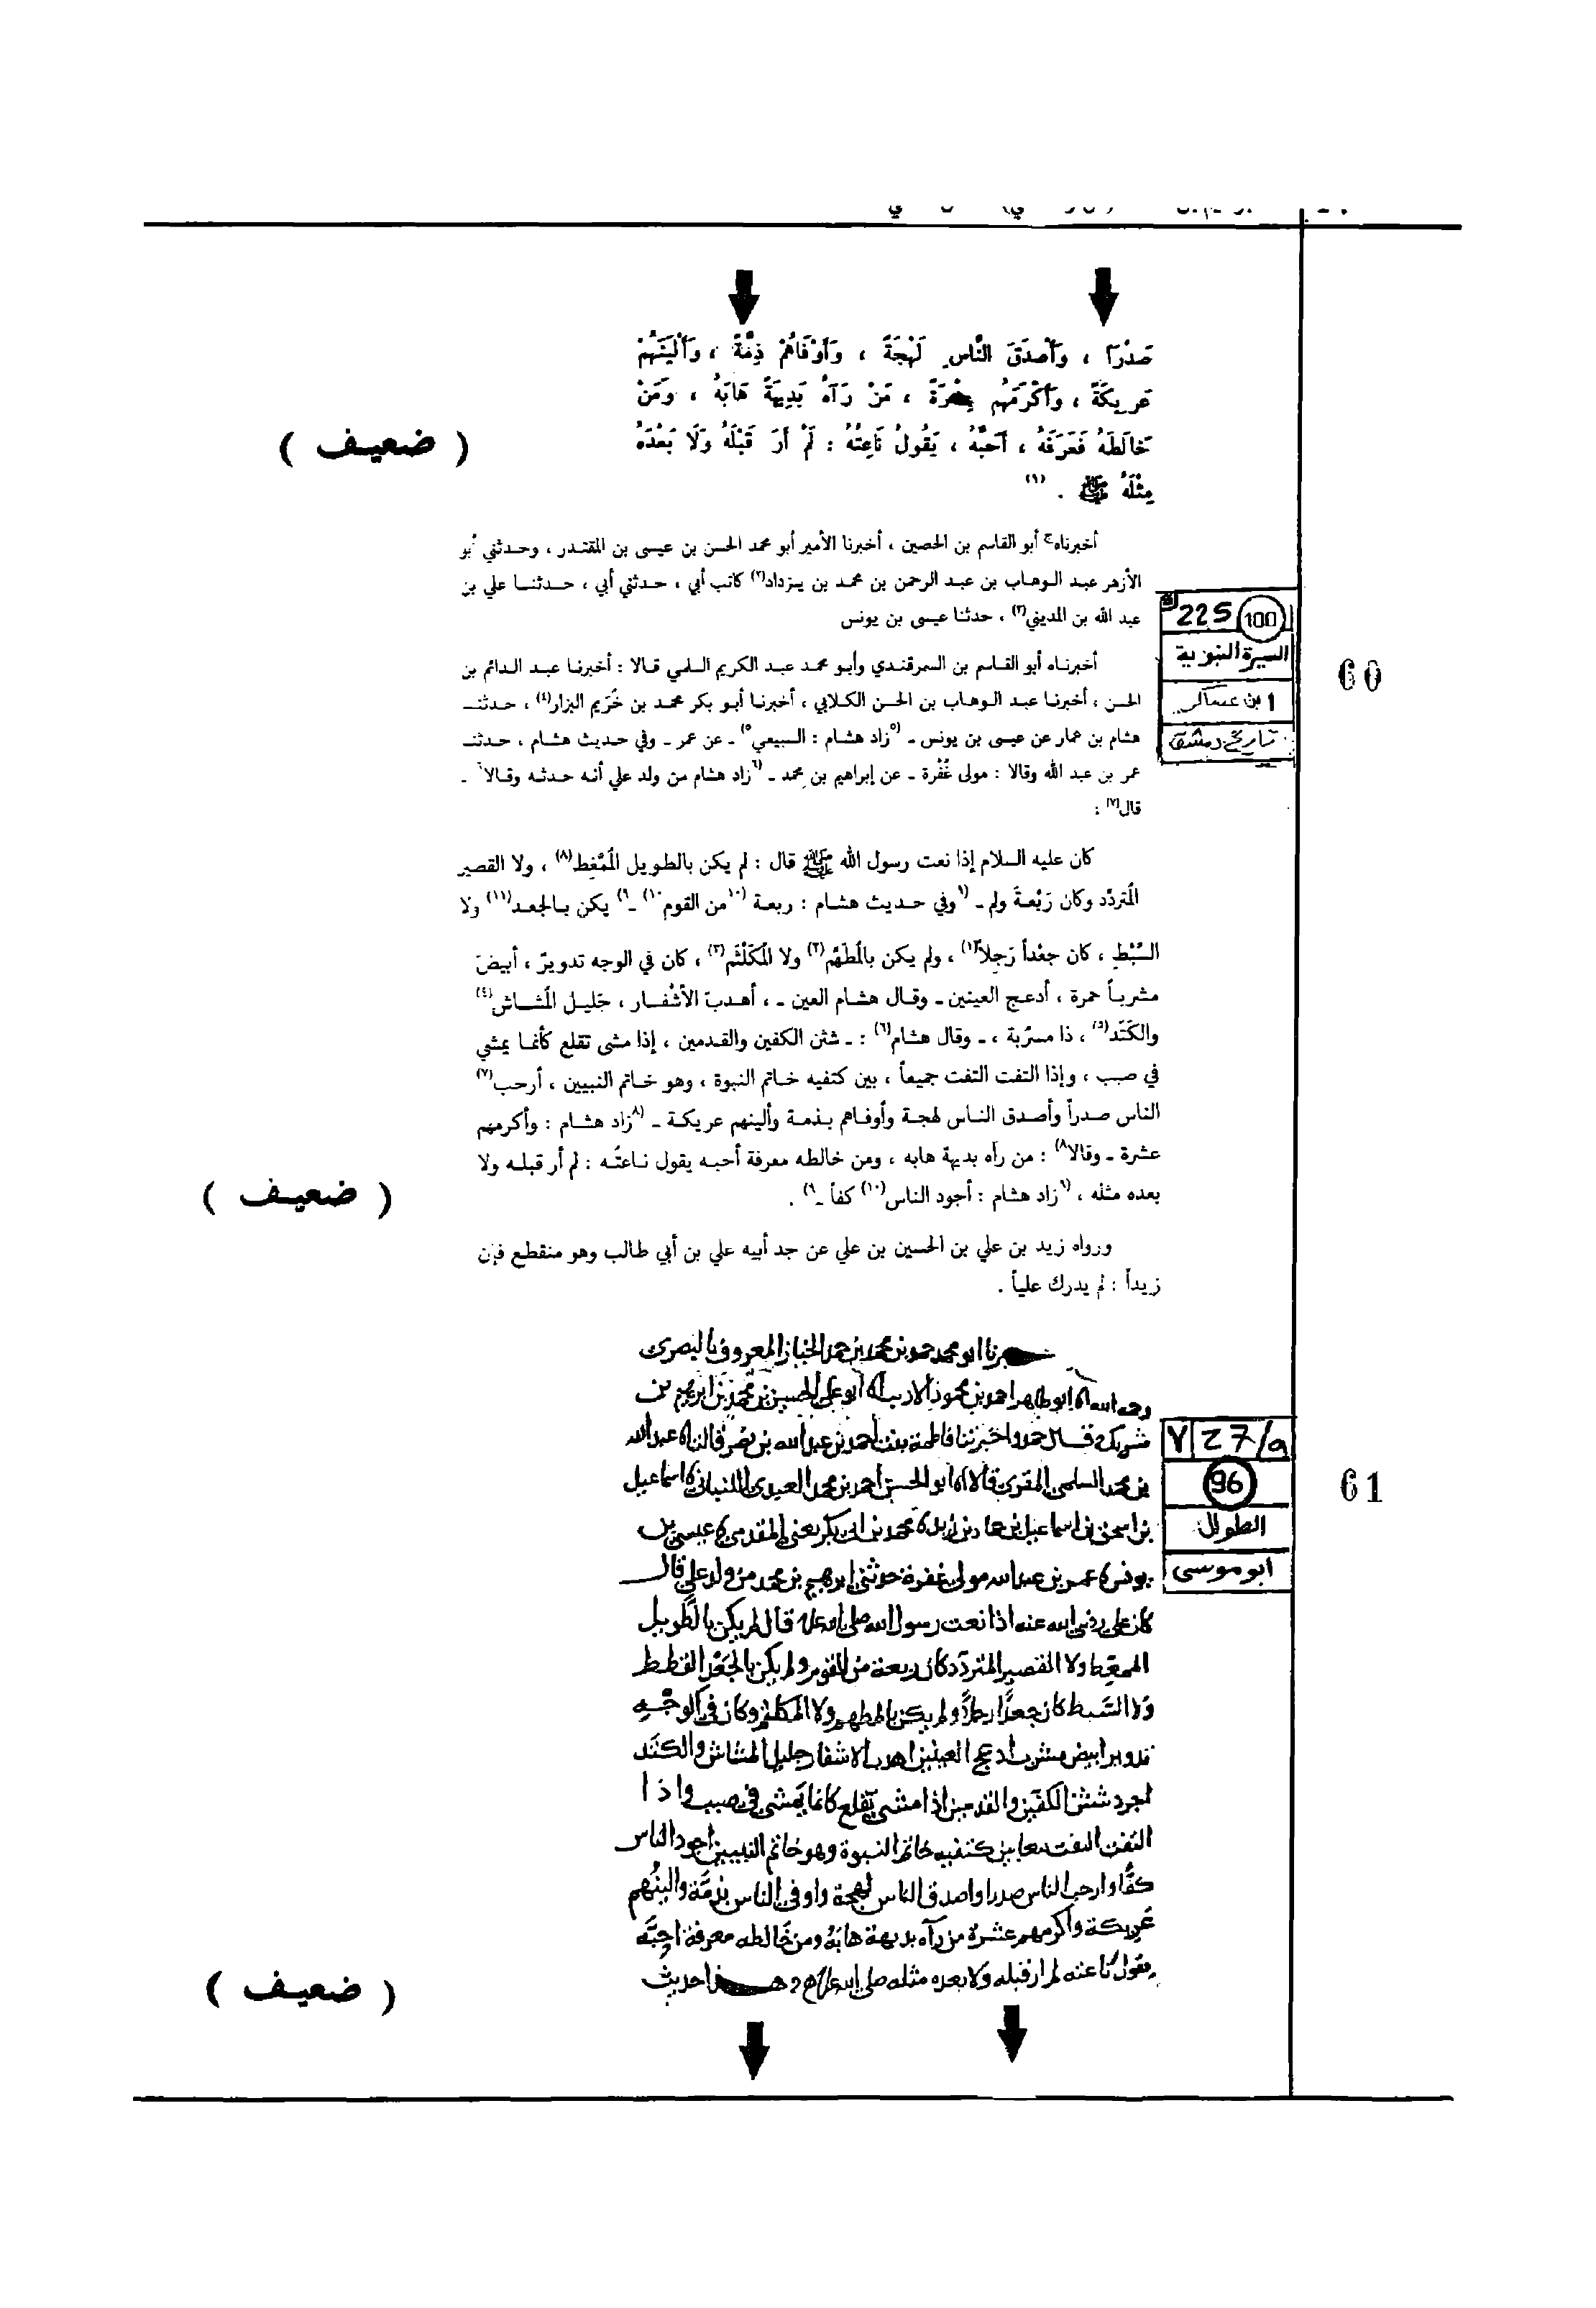 صَدْرَاً ، وَأَصْدَقَ النَّاسِ لَهْجَةً ، وَأَوْفَاهُمْ ذِمَّةً ، وَأَلْيَنَهُمْ
عَرِيكَةً ، وَأَكْرَمَهُم عِشْرَةً ، مَنْ رَآهُ بَدِيهَةً هَابَهُ ، وَمَنْ
خَالَطَهُ فَعَرَفَهُ ، أَحَبَّهُ ، يَقُولُ نَاعِتُهُ : لَمْ أَرَ قَبْلَهُ وَلَا بَعْدَهُ
( ضعيف )
مِثْلَهُ ﷺ . (١)
أخبرناه أبو القاسم بن الحصين ، أخبرنا الأمير أبو محمد الحسن بن عيسى بن المقتدر ، وحدثني أبو
الأزهر عبد الوهاب بن عبد الرحمن بن محمد بن يزداد(٢) كاتب أبي ، حدثني أبي ، حدثنا علي بن
عبد الله بن المديني(٣) ، حدثنا عيسى بن يونس
225 100
السيرة النبوية
ابن عساكر
تاريخ دمشق
60
أخبرناه أبو القاسم بن السمرقندي وأبو محمد عبد الكريم السلمي قالا : أخبرنا عبد الدائم بن
الحسن ، أخبرنا عبد الوهاب بن الحسن الكلابي ، أخبرنا أبو بكر محمد بن خُرَيم البزار(٤) ، حدثنا
هشام بن عمار عن عيسى بن يونس ـ (٥زاد هشام : السبيعي٥) ـ عن عمر ـ وفي حديث هشام ، حدثنا
عمر بن عبد الله وقالا : مولى غُفْرة ـ عن إبراهيم بن محمد ـ (٦زاد هشام من ولد علي أنه حدثه وقالا٦ ـ
قال(٧) :
كان عليه السلام إذا نعت رسول الله ﷺ قال : لم يكن بالطويل المُمْغِط(٨) ، ولا القصير
المُتردّد وكان رَبْعةً ولم ـ (٩وفي حديث هشام : ربعة (١٠من القوم١٠) ـ٩) يكن بالجعد(١١) ولا
السَّبْطِ ، كان جعْداً رَجِلاً(١٢) ، ولم يكن بالمُطَهّم(٢) ولا المُكَلْثَم(٣) ، كان في الوجه تدويرٌ ، أبيضَ
مشرباً حمرة ، أدعج العينين ـ وقال هشام العين ـ ، أهدبَ الأشْفار ، جَليل المُشاش(٤)
والكَتَد(٥) ، ذا مسرُبة ، ـ وقال هشام(٦) : ـ شثن الكفين والقدمين ، إذا مشى تقلع كأنما يمشي
في صبب ، وإذا التفت التفت جميعاً ، بين كتفيه خاتم النبوة ، وهو خاتم النبيين ، أرحب(٧)
الناس صدراً وأصدق الناس لهجة وأوفاهم بذمة وألينهم عريكة ـ (٨زاد هشام : وأكرمهم
عشرة ـ وقالا٨) : من رآه بديهة هابه ، ومن خالطه معرفة أحبه يقول ناعتُه : لم أر قبله ولا
بعده مثله ، (٩زاد هشام : أجود الناس(١٠) كفاً ـ٩) .
( ضعيف )
ورواه زيد بن علي بن الحسين بن علي عن جد أبيه علي بن أبي طالب وهو منقطع فإن
زيداً : لم يدرك علياً .
ابو محمد حمد بن محمد بن حمد الخباز المعروف بالبصري
رحمه الله انا ابو طاهر احمد بن محمود الاديب انا ابو علي الحسين بن محمد بن ابراهيم بن
شريك قال حمد واخبرتنا فاطمة بنت احمد بن عبد الله بن نصر قالت انا عبد الله
بن محمد السلمي المقرئ قالا انا ابو الحسن احمد بن محمد العبدي اللنباني نا اسماعيل
بن اسحق بن اسماعيل بن حماد بن زيد نا محمد بن ابي بكر يعني المقدمي نا عيسى بن
يونس نا عمر بن عبد الله مولى غفرة حدثني ابرهيم بن محمد من ولد علي قال
كان علي رضي الله عنه اذا نعت رسول الله صلى الله عليه قال لم يكن بالطويل
الممغط ولا القصير المتردد كان ربعة من القوم ولم يكن بالجعد القطط
ولا السبط كان جعدًا رجلاً ولم يكن بالمطهم ولا المكلثم وكان في الوجه
تدوير ابيض مشرب ادعج العينين اهدب الاشفار جليل المشاش والكتد
اجرد شثن الكفين والقدمين اذا مشى تقلع كانما يمشي في صبب واذا
التفت التفت معا بين كتفيه خاتم النبوة وهو خاتم النبيين اجود الناس
كفًا وارحب الناس صدرا واصدق الناس لهجة واوفى الناس بذمة والينهم
عريكة واكرمهم عشرة من رآه بديهة هابه ومن خالطه معرفة احبه
يقول ناعته لم ار قبله ولا بعده مثله صلى الله عليه هذا حديث
27/a ٧
96
الطوال
ابو موسى
61
( ضعيف )